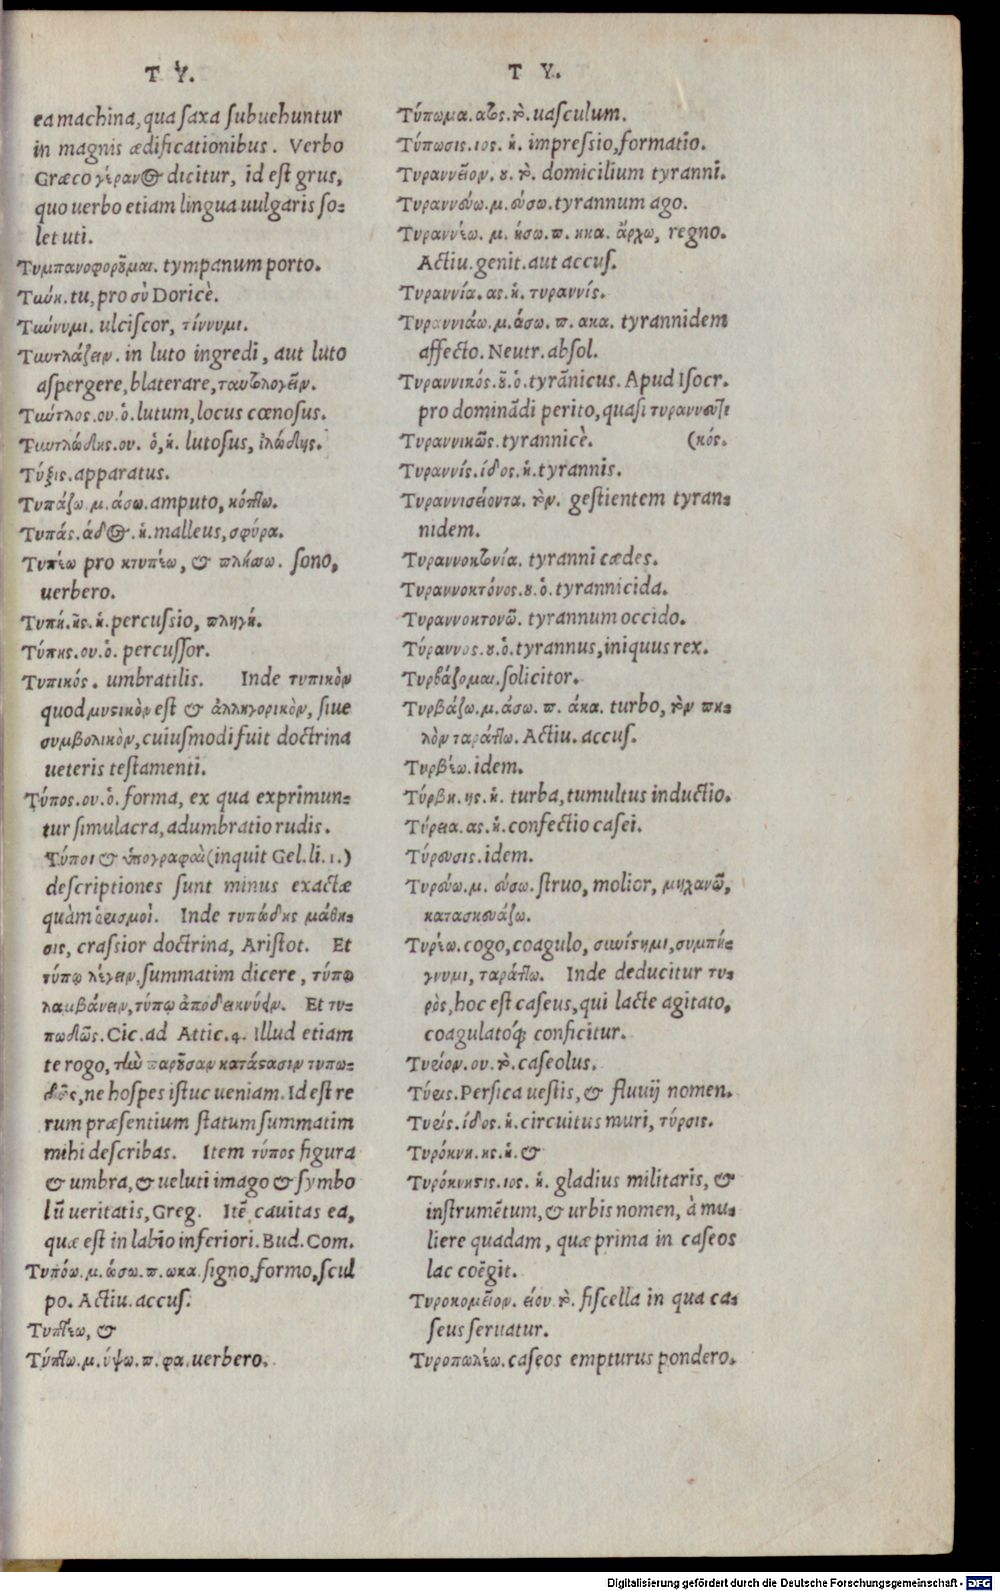 T Y.
ea machina, qua saxa subuehuntur
in magnis ædificationibus. Verbo
Græco γέρανος dicitur, id est grus,
quo uerbo etiam lingua uulgaris so=
let uti.
Τυμπανοφοροῦμαι. tympanum porto.
tu, pro σὺ Doricè.
ulciscor, τίννυμι.
in luto ingredi, aut luto
aspergere, blaterare, ταυτολογεῖν.
ου. ὁ. lutum, locus cœnosus.
ου. ὁ, ἡ. lutosus, ἰλώδης.
Τύξις. apparatus.
Τυπάζω. μ. άσω. amputo, κόπτω.
Τυπάς. άδος. ἡ. malleus, σφύρα.
Τυπέω pro κτυπέω, & πλήσσω. sono,
uerbero.
Τυπή. ῆς. ἡ. percussio, πληγή.
Τύπης. ου. ὁ. percussor.
Τυπικός. umbratilis. Inde τυπικὸν
quod μυστικὸν est & ἀλληγορικὸν, siue
συμβολικὸν, cuiusmodi fuit doctrina
ueteris testamenti.
Τύπος. ου. ὁ. forma, ex qua exprimun=
tur simulacra, adumbratio rudis.
Τύποι & ὑπογραφαὶ (inquit Gel. li. 1.)
descriptiones sunt minus exactæ
quàm ὁρισμοί. Inde τυπώδης μάθη=
σις, crassior doctrina, Aristot. Et
τύπῳ λέγειν, summatim dicere, τύπῳ
λαμβάνειν, τύπῳ ἀποδεικνύειν. Et τυ=
πωδῶς. Cic. ad Attic. 4. Illud etiam
te rogo, τὴν παροῦσαν κατάστασιν τυπω=
δῶς, ne hospes istuc ueniam. Id est re
rum præsentium statum summatim
mihi describas. Item τύπος figura
& umbra, & ueluti imago & symbo
lū ueritatis, Greg. Itē cauitas ea,
quæ est in labio inferiori. Bud. Com.
Τυπόω. μ. ώσω. π. ωκα. signo, formo, scul
po. Actiu. accus.
Τυπτέω, &
Τύπτω. μ. ύψω. π. φα. uerbero.
T Y.
Τύπωμα. ατος. τὸ. uasculum.
Τύπωσις. ιος. ἡ. impressio, formatio.
Τυραννεῖον. ου. τὸ. domicilium tyranni.
Τυραννεύω. μ. εύσω. tyrannum ago.
Τυραννέω. μ. ήσω. π. ηκα. ἄρχω, regno.
Actiu. genit. aut accus.
Τυραννία. ας. ἡ. τυραννίς.
Τυραννιάω. μ. άσω. π. ακα. tyrannidem
affecto. Neutr. absol.
Τυραννικός. οῦ. ὁ. tyrānicus. Apud Isocr.
pro domināди perito, quasi τυραννευτι
Τυραννικῶς. tyrannicè. (κός.
Τυραννίς. ίδος. ἡ. tyrannis.
Τυραννισείοντα. τὸν. gestientem tyran=
nidem.
Τυραννοκτονία. tyranni cædes.
Τυραννοκτόνος. ου. ὁ. tyrannicida.
Τυραννοκτονῶ. tyrannum occido.
Τύραννος. ου. ὁ. tyrannus, iniquus rex.
Τυρβάζομαι. solicitor.
Τυρβάζω. μ. άσω. π. άκα. turbo, τὸν πη=
λὸν ταράττω. Actiu. accus.
Τυρβέω. idem.
Τύρβη. ης. ἡ. turba, tumultus inductio.
Τύρεια. ας. ἡ. confectio casei.
Τύρευσις. idem.
Τυρεύω. μ. εύσω. struo, molior, μηχανῶ,
κατασκευάζω.
Τυρέω. cogo, coagulo, συνίστημι, συμπή=
γνυμι, ταράττω. Inde deducitur τυ=
ρὸς, hoc est caseus, qui lacte agitato,
coagulatóq; conficitur.
Τυρίον. ου. τὸ. caseolus.
Τύρις. Persica uestis, & fluuij nomen.
Τυρίς. ίδος. ἡ. circuitus muri, τύρσις.
Τυρόκνη. ης. ἡ. &
Τυρόκνηστις. ιος. ἡ. gladius militaris, &
instrumētum, & urbis nomen, à mu=
liere quadam, quæ prima in caseos
lac coëgit.
Τυροκομεῖον. είου. τὸ. fiscella in qua ca=
seus seruatur.
Τυροπωλέω. caseos empturus pondero.
Digitalisierung gefördert durch die Deutsche Forschungsgemeinschaft - DFG